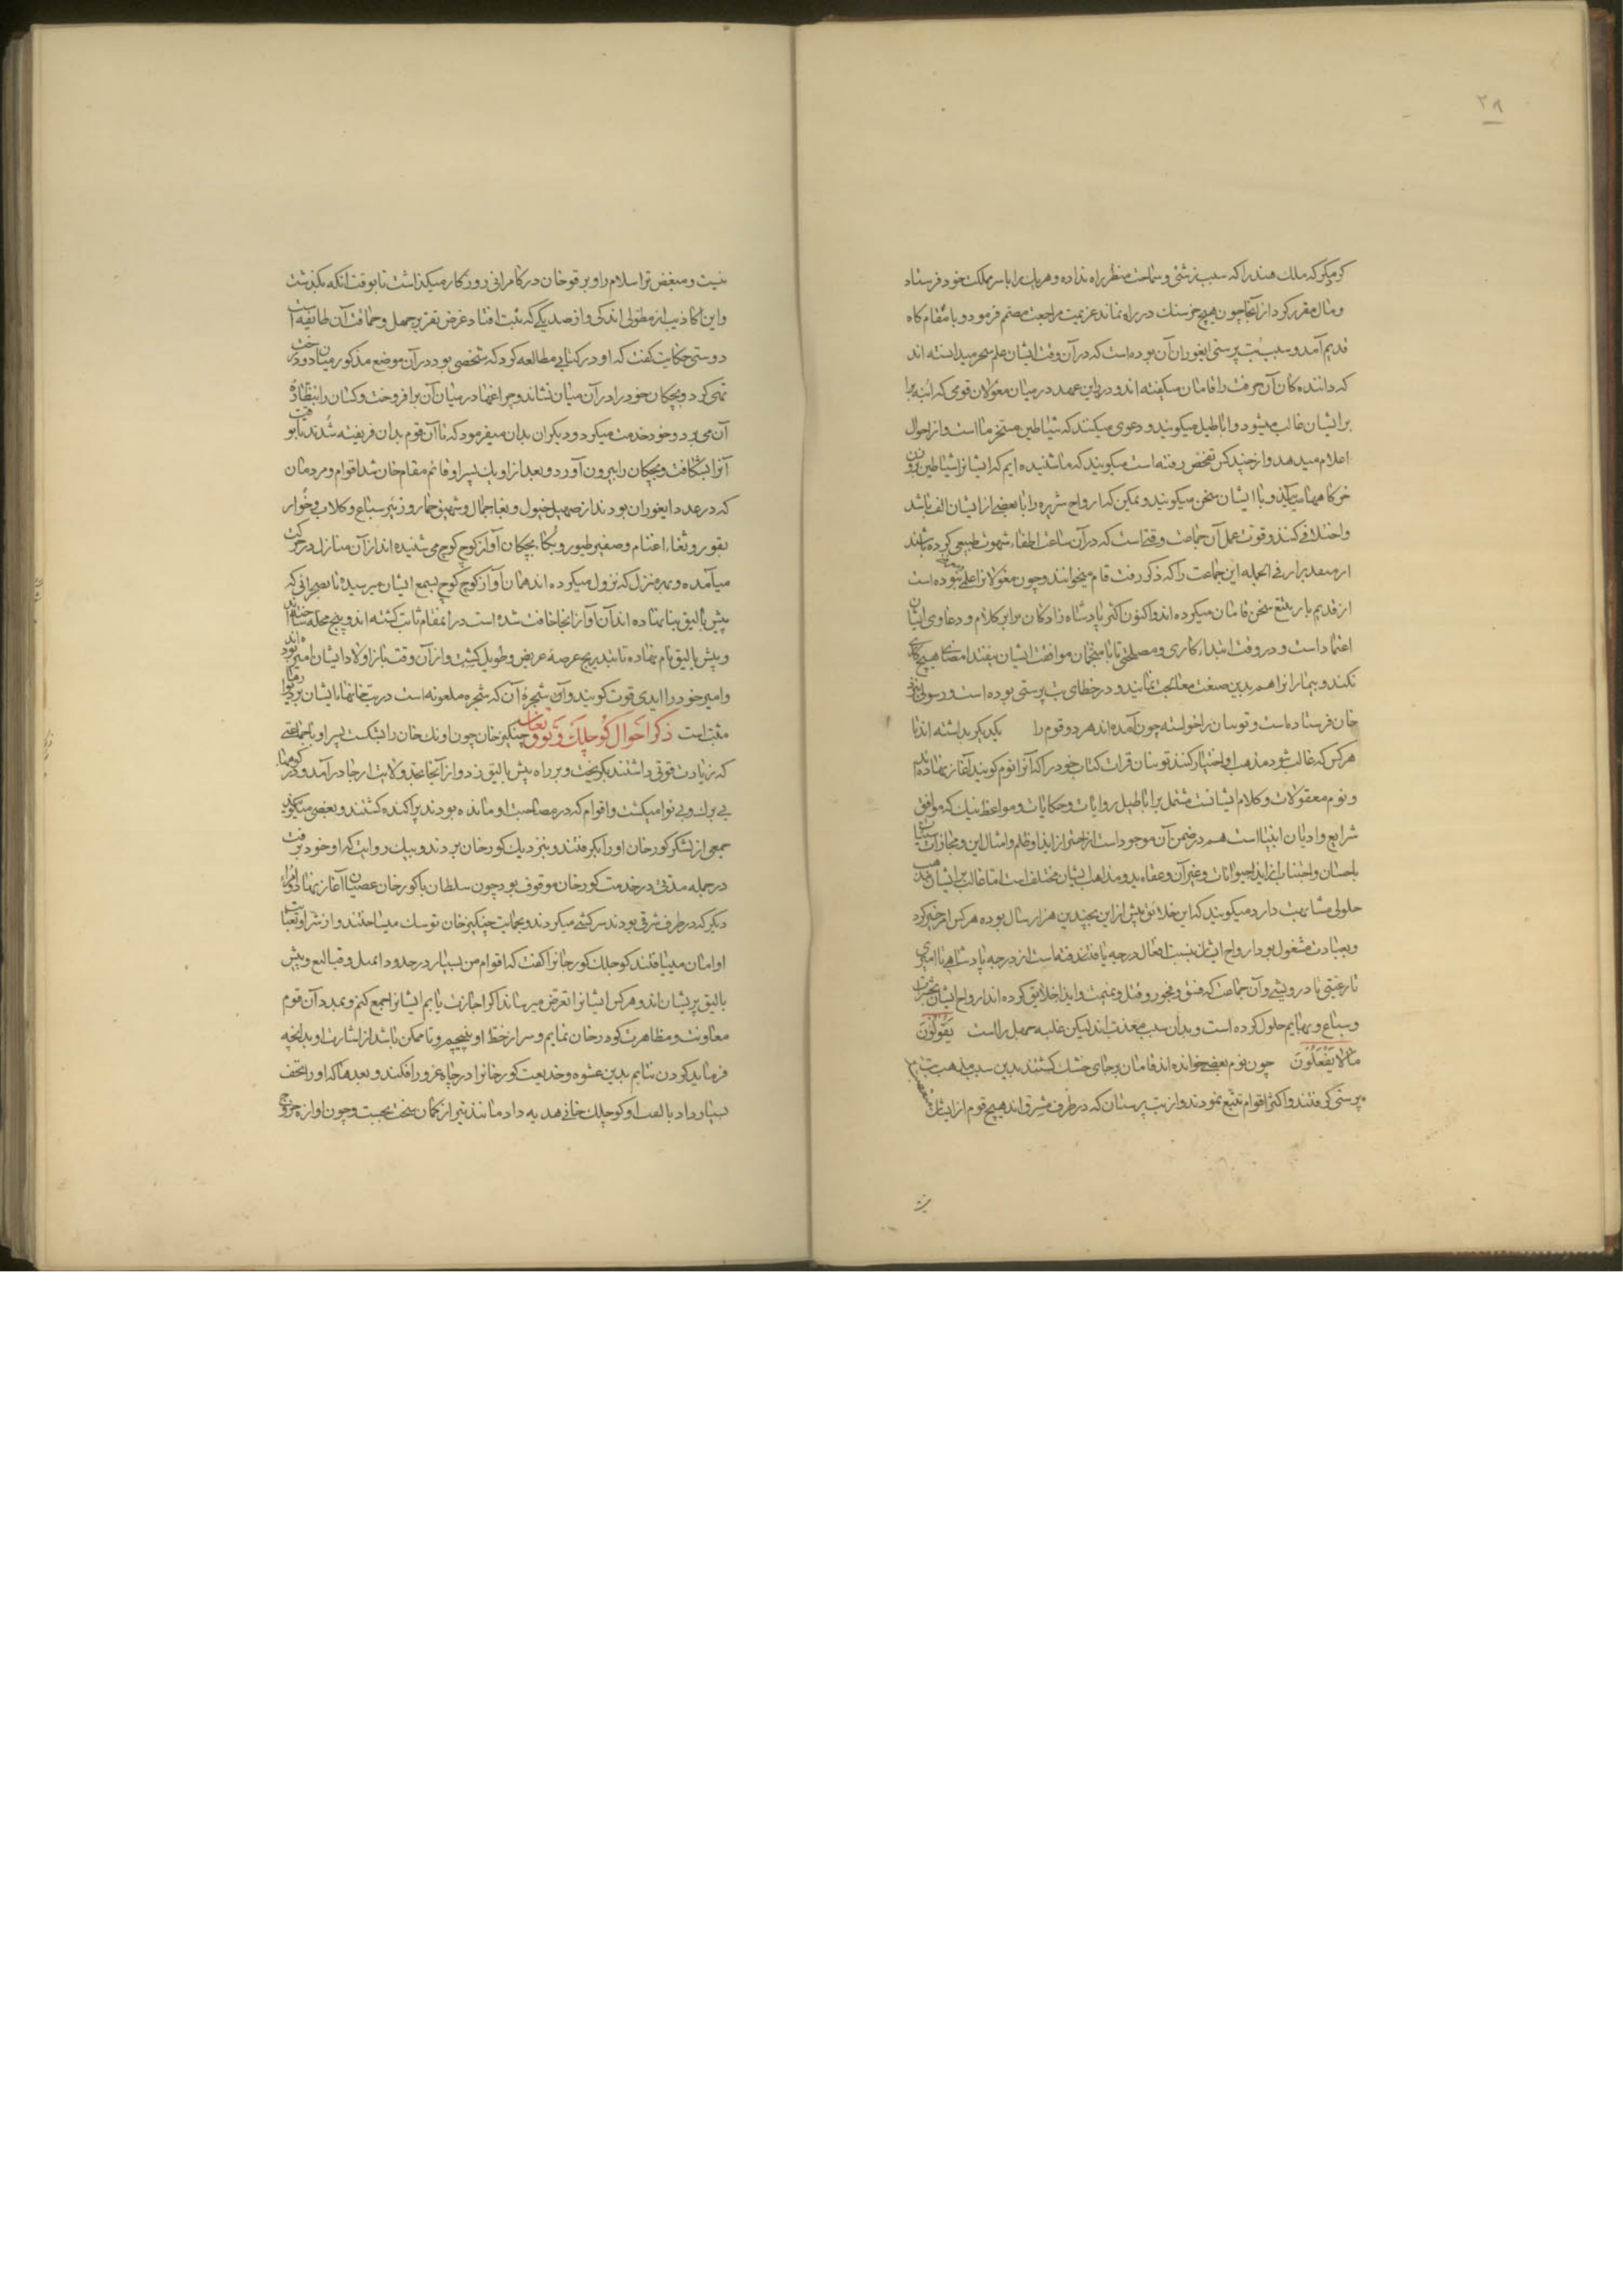 ۲۹
کرم مکر که ملک هند را که سبب زشتی و سماحت منظر راه نداده و هریک را با سر مملکت خود فرستاد
و مال مقرر کرد از آنجا چون هیچ خرسنک در راه نماند عزیمت مراجعت مصمم فرمود و با مقام کاه
قدیم آمد و سبب بت پرستی ایغوران آن بوده است که در آن وقت ایشان علم سحر میدانسته اند
که داننده کان آن حرفت را قامان میکفته اند و درین عهد در میان مغولان قومی که ابنه برا
برایشان غالب میشود و اباطیل میکویند و دعوی میکنند که شیاطین مسخر ما است و از احوال
اعلام میدهد و از چند کس تفحص رفته است میکویند که ما شنیده ایم که ایشانرا شیاطین از روزن
خرکاهها میآیند و با ایشان سخن میکویند و ممکن که ارواح شریره را با بعضی از ایشان الف باشد
و اختلافی کنند و قوت عمل آن جماعت وقتی است که در آن ساعت اطفاء شهوت طبیعی کرده باشند
از منفذ براز فی الجمله این جماعت را که ذکر رفت قام میخوانند و چون مغولانرا علمی نبوده است
از قدیم باز تتبع سخن قامان میکرده اند و اکنون اکثر پادشاه زادکان برابر کلام و دعاوی ایشان
اعتماد است و در وقت ابتداء کاری و مصلحتی تا با منجمان موافقت ایشان نیفتد امضای هیچ کاری
نکنند و بیمارانرا هم بدین صفت معالجت نمایند و در خطای بت پرستی بوده است و رسولی نزد
خان فرستاده است و توینان را خواسته چون آمده اند هر دو قوم را یکدیکر بداشته اند تا
هرکس که غالب شود مذهب او اختیار کنند توینان قرات کتاب خود را که آنرا نوم کویند آغاز نهاده اند
و نوم معقولات و کلام ایشانست مشتمل بر اباطیل روایات و حکایات و مواعظ نیک که موافق
شرایع و ادیان انبیا است هم در ضمن آن موجود است از احتراز ایذا و ظلم و امثال این و مجازات سیئات
باحسان و اجتناب از ایذا حیوانات و غیر آن و عقاید و مذاهب ایشان مختلف است اما غالب بر ایشان مذهب
حلولی مشابهت دارد میکویند که این خلائق پیش از این بچندین هزار سال بوده هرکس امر خیر کرد
و بعبادت مشغول بود ارواح ایشان بنسبت افعال درجه یافتند فته است از درجه پادشاهی تا امیری
تا رعیتی یا درویشی و آن جماعت که فسق و فجور و قتل و نمیمت و ایذا خلایق کرده اند ارواح ایشان بحشرات
و سباع و بهایم حلول کرده است و بدان سبب معذب اند لیکن غلبه جهل راست یَقُولُونَ
مَالا یَفْعَلُونَ چون نوم بعضی خوانده اند قامان برجای خشک کشتند بدین سبب مذهب بت
پرستی گرفتند و اکثر اقوام تتبع نمودند و از بت پرستان که در طرف مشرق اند هیچ قوم از ایشان
نیست و مبغض تر اسلام را و بوقو خان در کامرانی روزکار میکذاشت تا بوقت آنکه بکذشت
و این اکاذیب از مطولی اندکی و از صد یکی که ثبت افتاد غرض تقریر جهل و حماقت آن طایفه است
دوستی حکایت کفت که او در کتابی مطالعه کرد که شخصی بود در آن موضع مذکور میان دو درخت
تهی کرد و بچکان خود را در آن میان نشاند و چراغها در میان آن برافروخت و کسان را بنظاره
آن می برد و خود خدمت میکرد و دیکران بدان میفرمود که تا آن قوم بدان فریفته شدند تا بوقت
آنرا بشکافت و بچکان را بیرون آورد و بعد از او یک پسر او قائم مقام خان شد اقوام و مردمان
که در عدد ایغوران بودند از صهیل خیول و بغا جمال و شهیق حمار و زئیر سباع و کلاب و خوار
بقور و ثغاء اغنام و صفیر طیور و بکاء بچکان آواز کوچ کوچ می شنیده اند از آن منازل در حرکت
میآمده و بهر منزل که نزول میکرده اند همان آواز کوچ کوچ بسمع ایشان میرسیده تا بصحرائی که
بیش بالیق بنا نهاده اند آن آواز آنجا خافت شده است در آنمقام ثابت کشته اند و پنج محله ساخته اند
و بیش بالیق نام نهاده تا بتدریج عرصهٔ عریض و طویل کشت و از آن وقت باز اولاد ایشان امیر بوده اند
و امیر خود را ایدی قوت کویند و آن شجرهٔ آن که شجره ملعونه است در بت خانها ایشان بر دیوارها
مثبت است ذکر احوال کوچلک و توق تغان چنکیز خان چون اونک خان را بشکست پسر او با جماعتی
که زیادت قوتی داشتند بکریخت و بر راه بیش بالیق زد و از آنجا بحد ولایت ارجا درآمد و در کوهها
بی برک و بی نوا میکشت و اقوام که در مصاحبت او مانده بودند پراکنده کشتند و بعضی میکویند
جمعی از لشکر کورخان او را بکرفتند و بنزدیک کورخان بردند و بیک روایت که او خود برفت
در جمله مدتی در خدمت کورخان موقوف بود چون سلطان با کورخان عصیان آغاز نهاد و امراء
دیکر که در طرف شرقی بودند سرکشی میکردند و بحمایت چنکیز خان توسک میساختند و از شر او بعنایت
او امان مییافتند کوچلک کورخانرا کفت که اقوام من بسیار در حدود ایمیل و قیالیغ و بیش
بالیق پریشان اند و هرکس ایشانرا تعرض میرساند اکر اجازت یابم ایشانرا جمع کنم و بمدد آن قوم
معاونت و مظاهرت کورخان نمایم و سر از خط او نپیچیم و تا ممکن باشد از اشارت او بدانچه
فرماید کردن نتابم بدین عشوه و خدیعت کورخانرا در چاه غرور افکند و بعدها که او را تحف
بسیار داد بالقب او کوچلک خانی هدیه داد مانند تیر از کمان سخت بجست و چون آوازه خروج